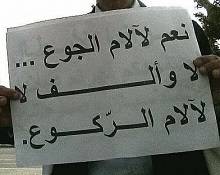 نعم لآلام الجوع ...
لا وألـــــف لا
لآلام الـــرّكـــوع.